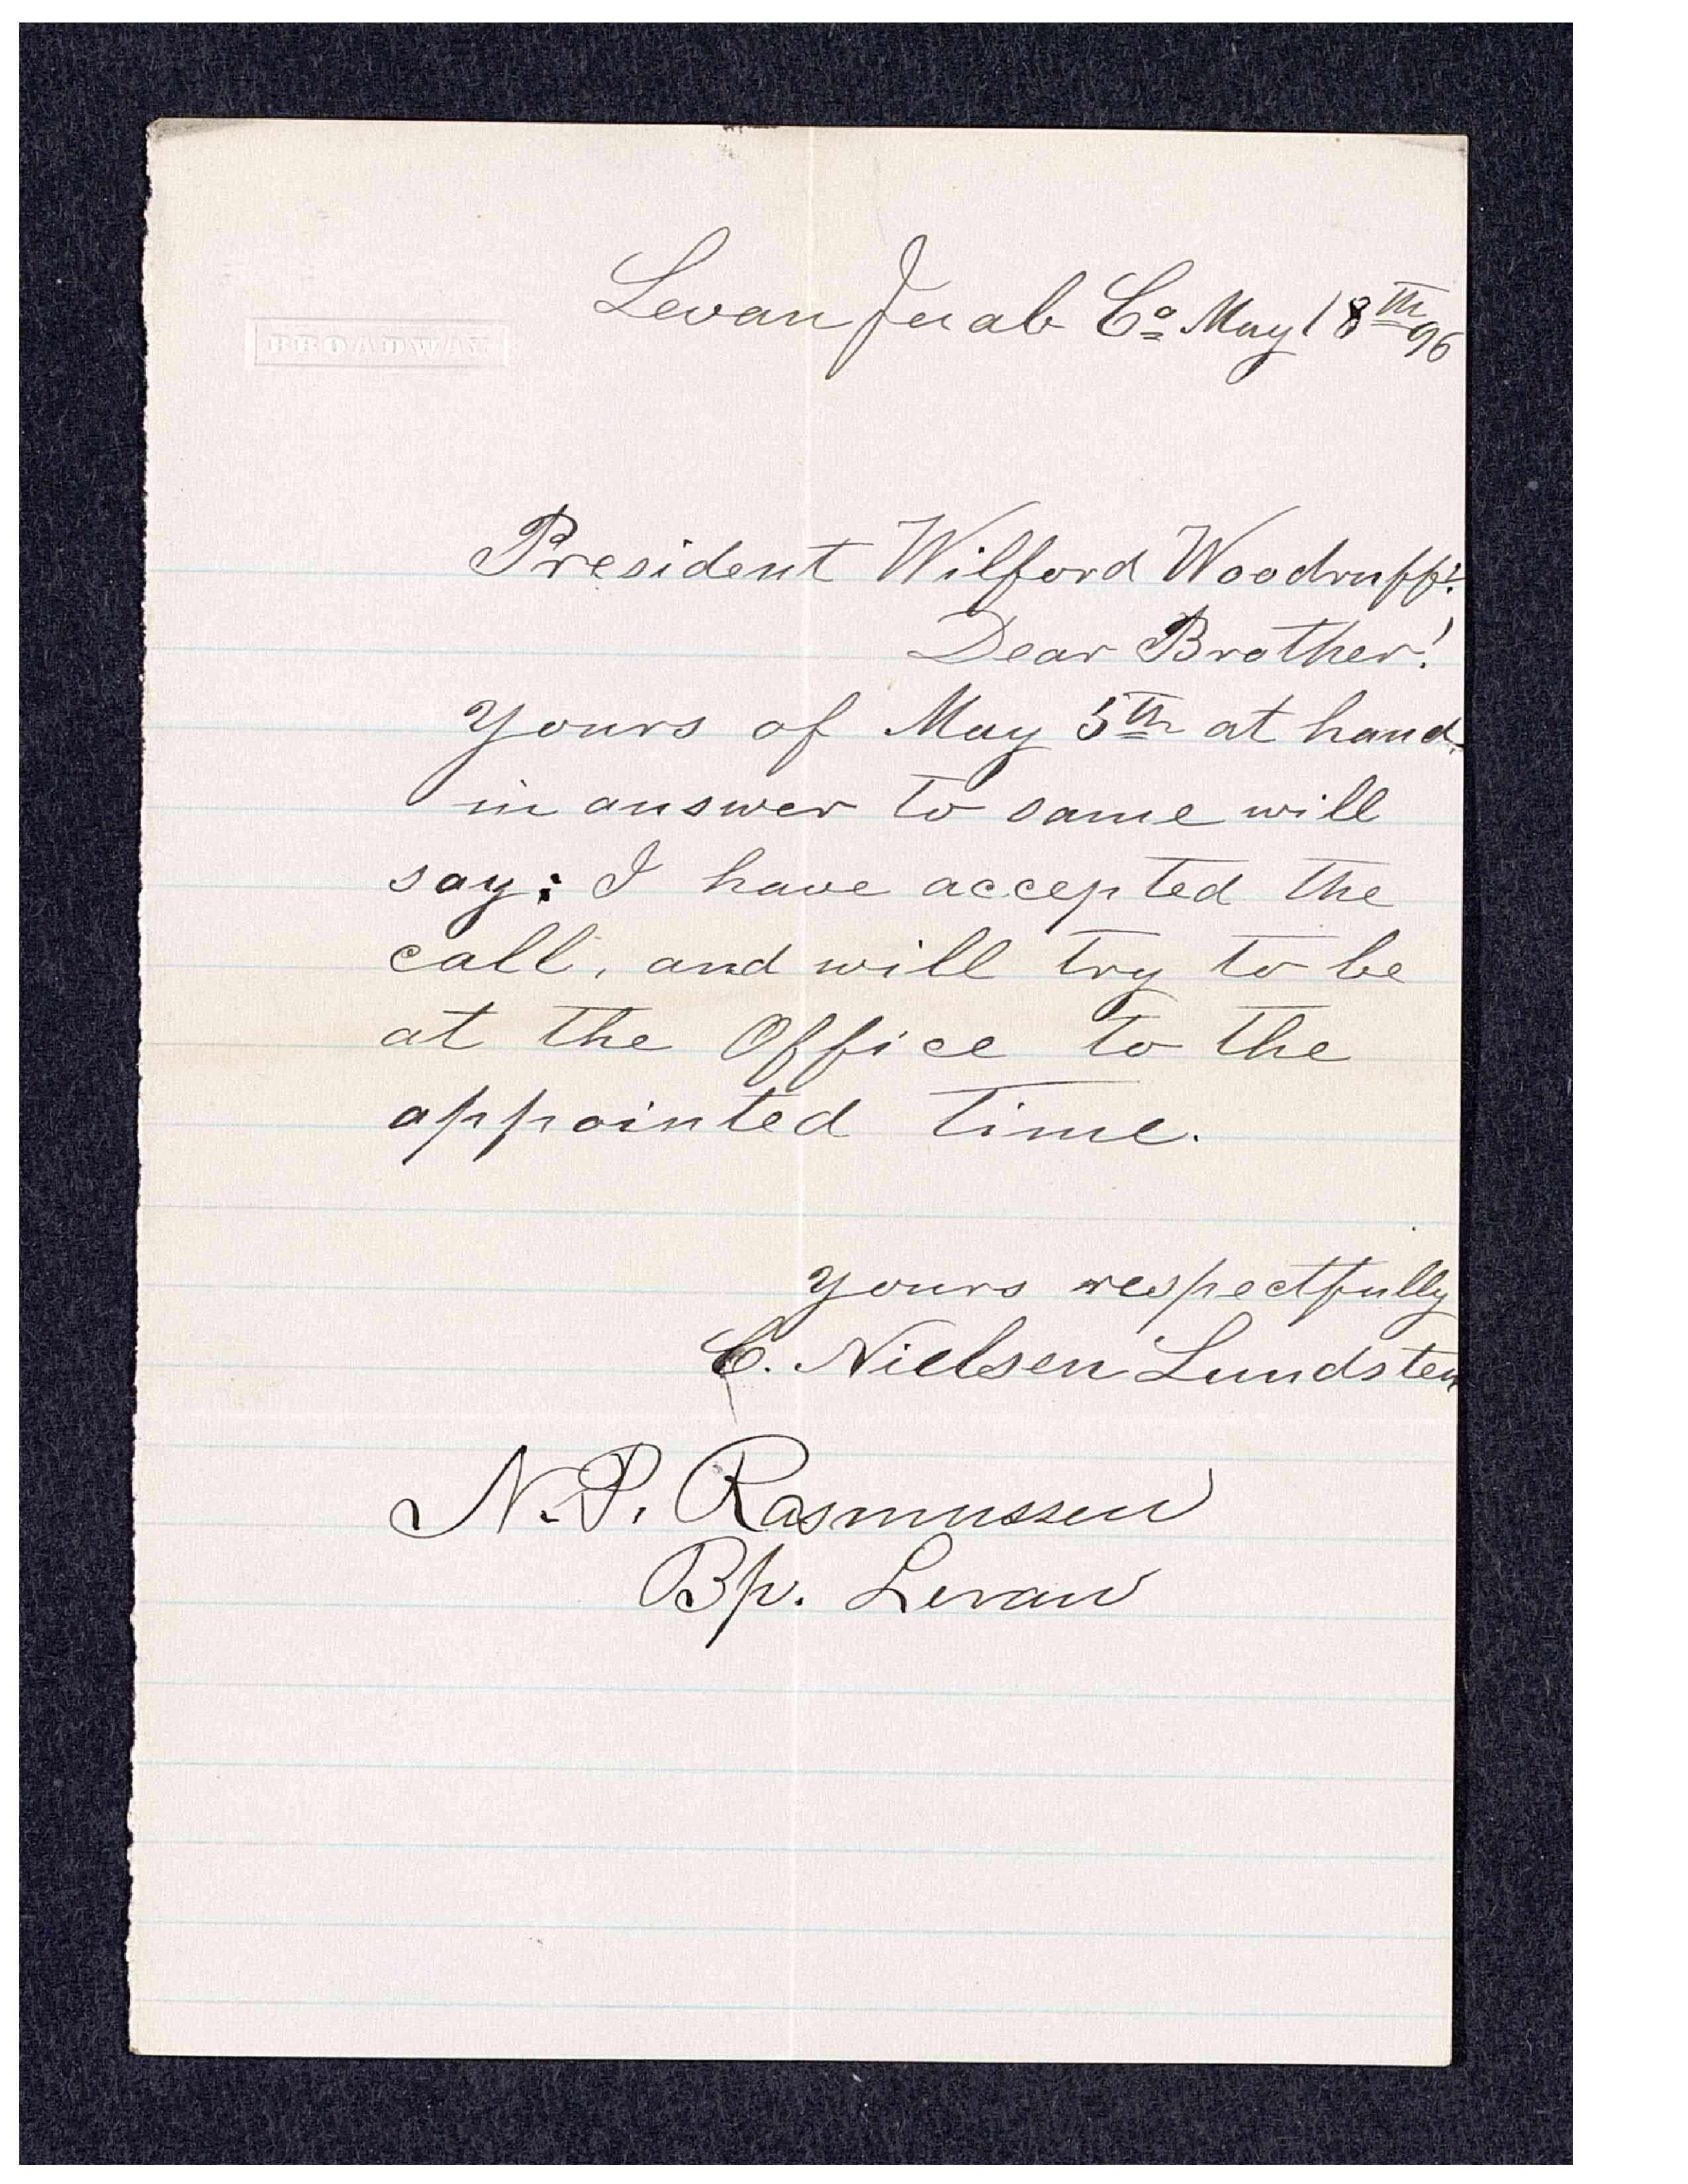 BROADWAY
Levan Juab Co May 18th 96
President Wilford Woodruff!
Dear Brother!
Yours of May 5th at hand.
in answer to same will
say: I have accepted the
call, and will try to be
at the Office to the
appointed time.
Yours respectfully
C. Nielsen Lundsten
N. P. Rasmussen
Bp. Levan